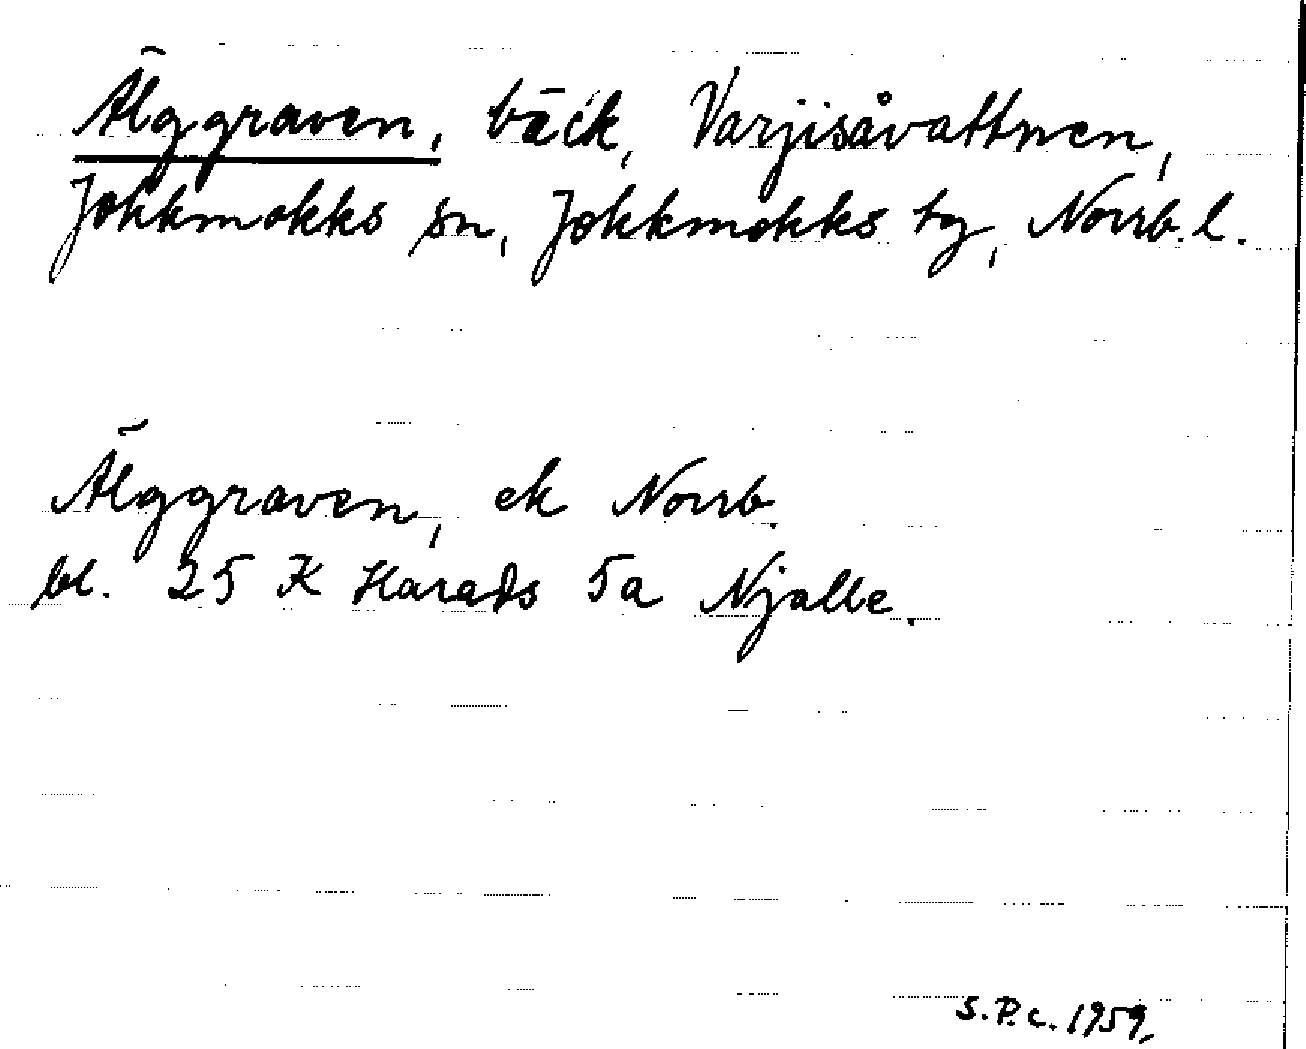 Älggraven, bäck, Varjisåvattnen,
Jokkmokks sn, Jokkmokks tg, Norrb. l.
Älggraven, ek Norrb.
bl. 25 K Harads 5a Njalle.
S.P.c. 1959,